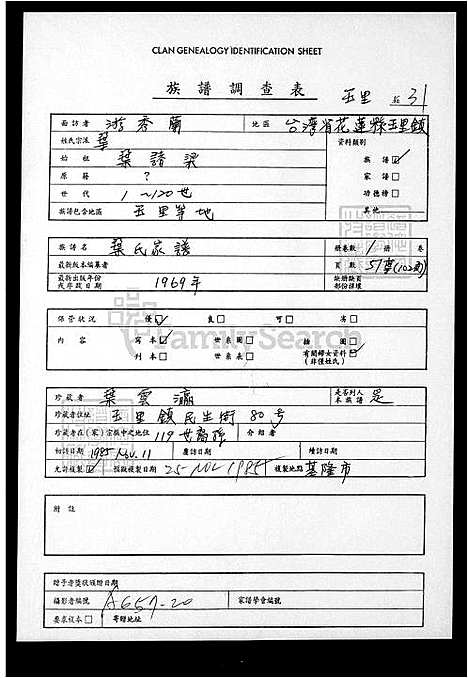 CLAN GENEALOGY IDENTIFICATION SHEET
族譜調查表 玉里 31
面訪者 游秀蘭 地區 台灣省花蓮縣玉里鎮
姓氏宗派 葉 資料類別
始祖 葉諸梁 族譜☑
原籍 ? 家譜□
世代 1～120世 功德榜□
族譜包含地區 玉里等地 其他
族譜名 葉氏家譜 冊卷數 1 冊 卷
最新版本編纂者 頁數 51頁(102面)
最新出版年份或序跋日期 1969年 缺冊缺頁部份損壞
保管狀況 優☑ 良□ 可□ 劣□
內容 寫本☑ 世系圖□ 插圖□
刊本□ 世系表□ 有關婦女資料☑(非僅姓氏)
FamilySearch
珍藏者 葉雲瀛 是否列入本族譜 是
珍藏者位址 玉里鎮民生街80号
珍藏者在(家)宗族中之地位 119世裔孫 介紹者
初訪日期 1985 Nov. 11 覆訪日期 續訪日期
允許複製☑ 攝影複製日期 25 NOV 1985 複製地點 基隆市
附註
贈予者獎狀頒贈日期
攝影者編號 A657-20 家譜學會編號
要求複本□ 寄贈地址